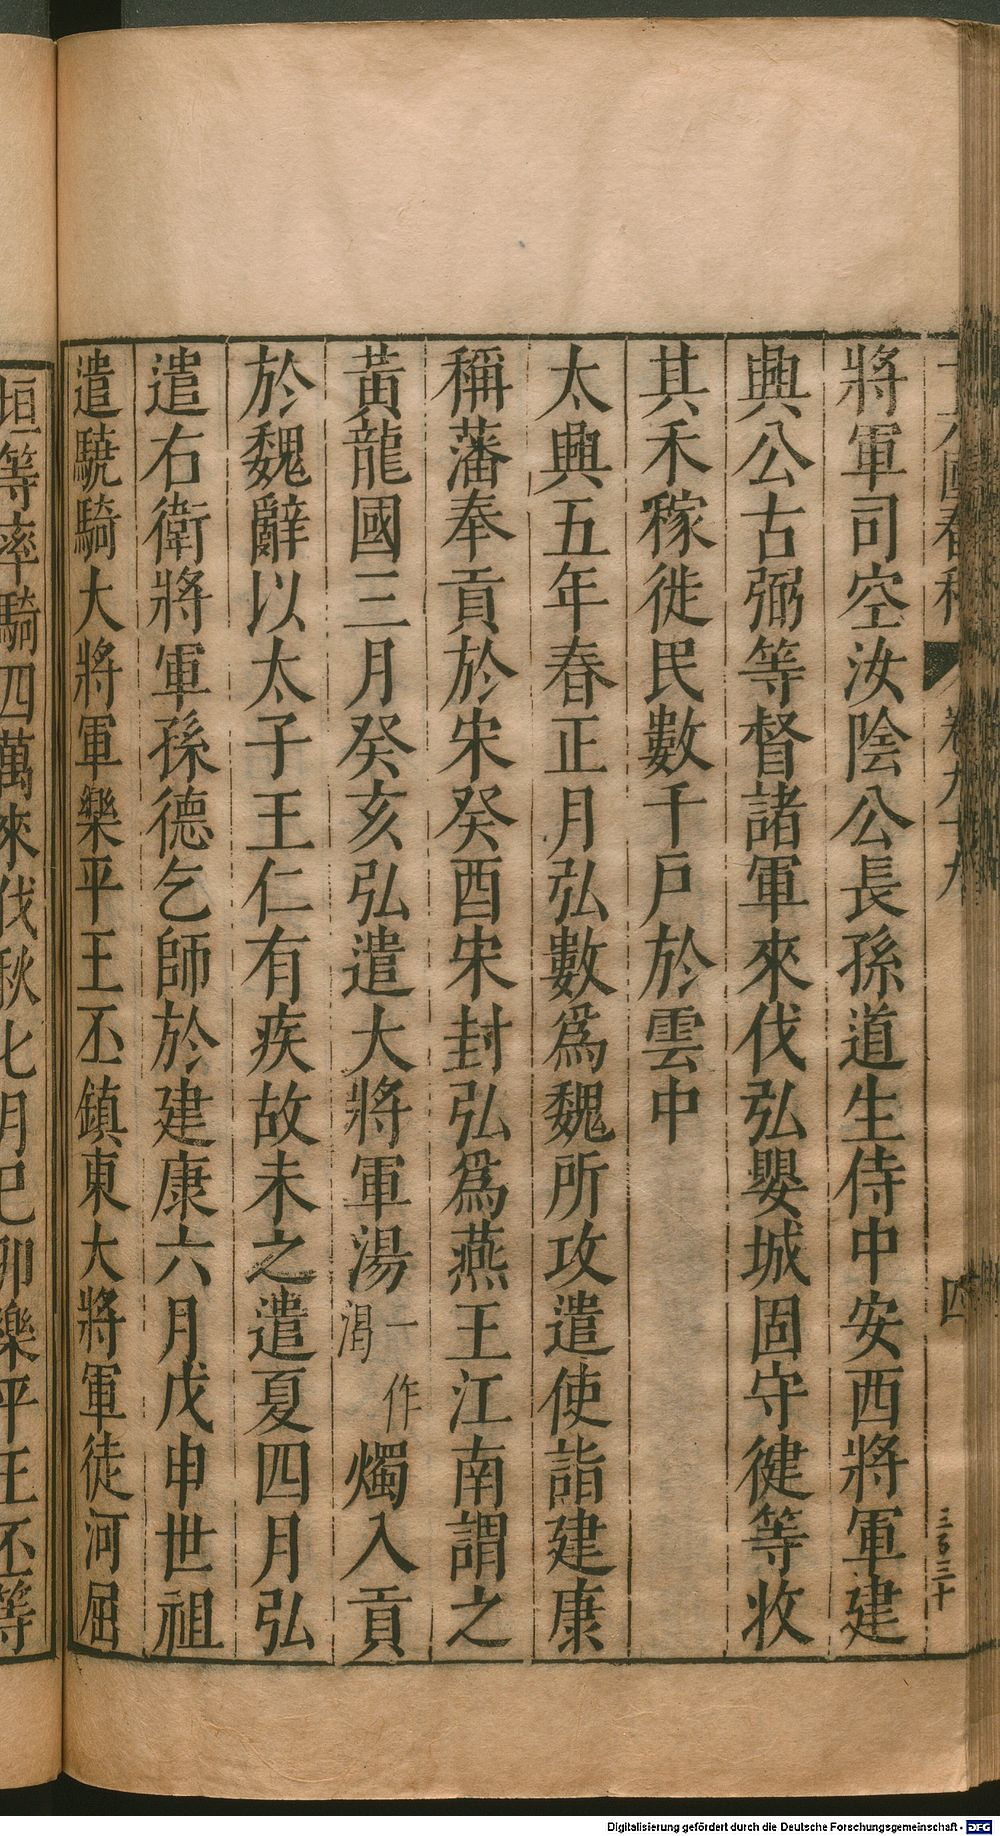 十六國春秋 卷九十九 四 三百三十
將軍司空汝陰公長孫道生侍中安西將軍建
興公古弼等督諸軍來伐弘嬰城固守健等收
其禾稼徙民數千戸於雲中
太興五年春正月弘數爲魏所攻遣使詣建康
稱藩奉貢於宋癸酉宋封弘爲燕王江南謂之
黃龍國三月癸亥弘遣大將軍湯一作渴燭入貢
於魏辭以太子王仁有疾故未之遣夏四月弘
遣右衛將軍孫德乞師於建康六月戊申世祖
遣驍騎大將軍樂平王丕鎮東大將軍徒河屈
垣等率騎四萬來伐秋七月己卯樂平王丕等
Digitalisierung gefördert durch die Deutsche Forschungsgemeinschaft - DFG